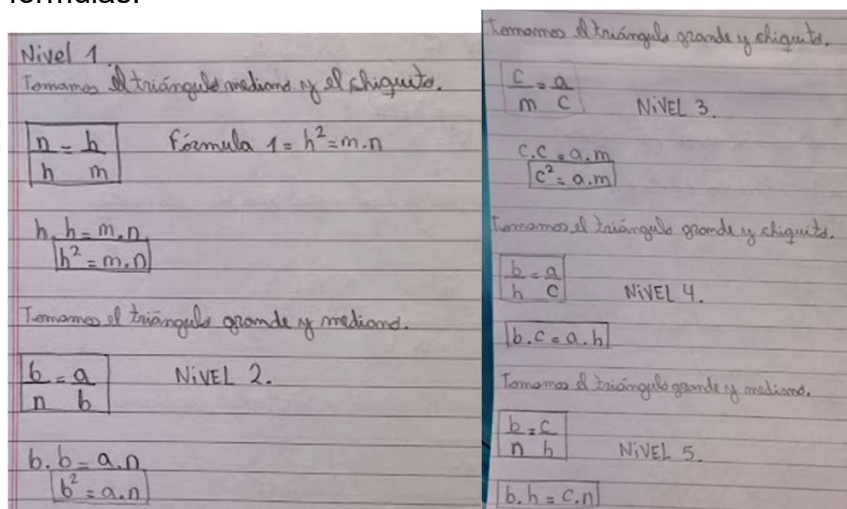 formulas.
Nivel 1
Tomamos el triángulo mediano y el chiquito.
n/h = h/m
Fórmula 1 = h² = m.n
h.h = m.n
h² = m.n
Tomamos el triángulo grande y mediano.
b/n = a/b
NIVEL 2.
b.b = a.n
b² = a.n
Tomamos el triángulo grande y chiquito.
c/m = a/c
NIVEL 3.
c.c = a.m
c² = a.m
Tomamos el triángulo grande y chiquito.
b/h = a/c
NIVEL 4.
b.c = a.h
Tomamos el triángulo grande y mediano.
b/n = c/h
NIVEL 5.
b.h = c.n